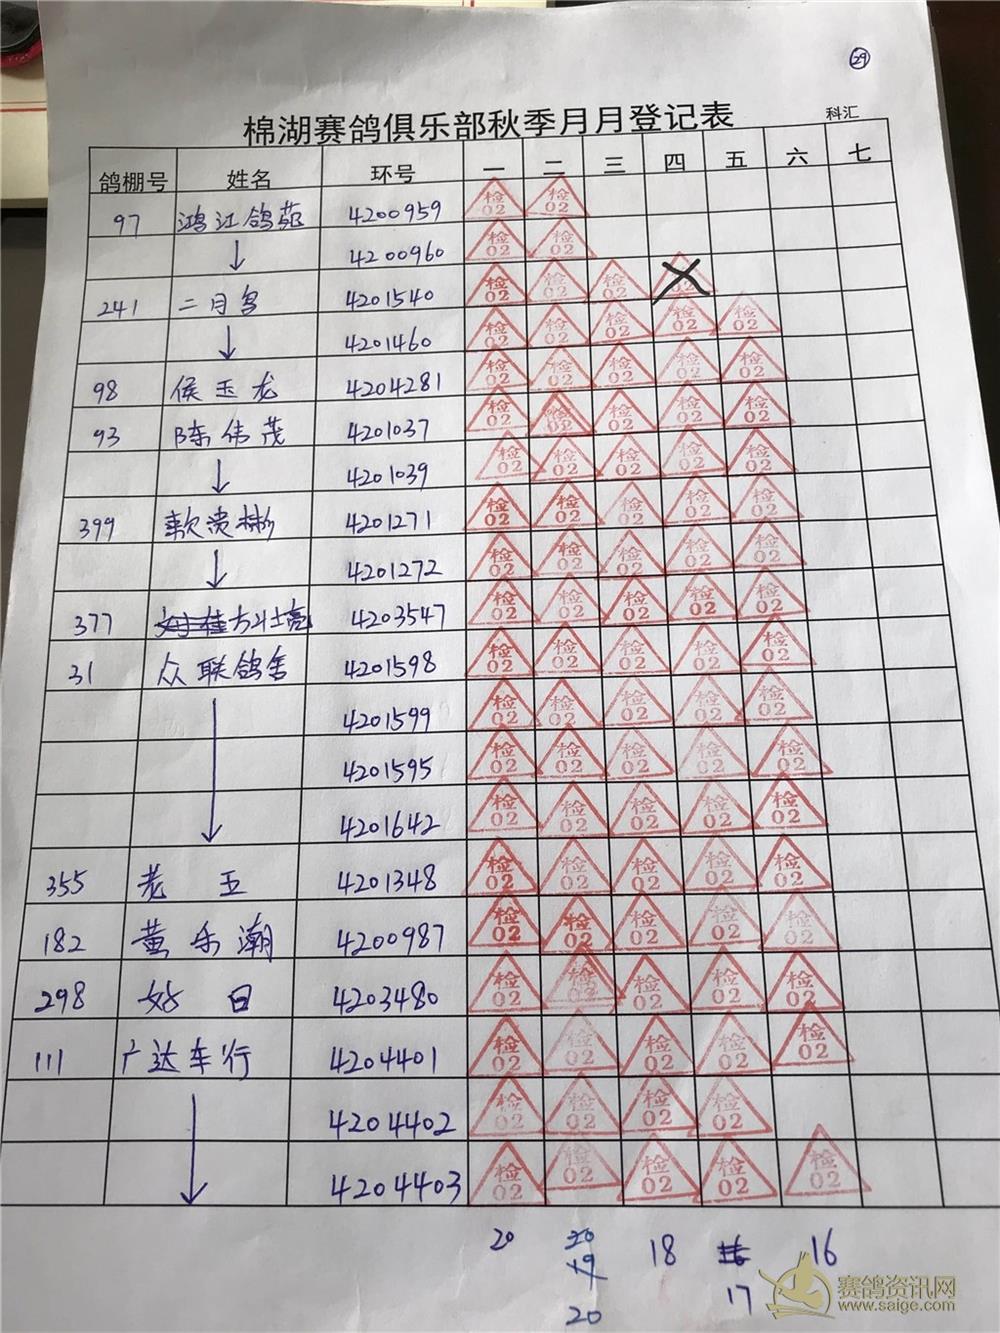 29
棉湖赛鸽俱乐部秋季月月登记表 科汇
鸽棚号 姓名 环号 一 二 三 四 五 六 七
97 鸿江鸽苑 4200959 检02 检02
↓ 4200960 检02 检02
241 二月鸟 4201540 检02 检02 检02
↓ 4201460 检02 检02 检02 检02 检02
98 侯玉龙 4204281 检02 检02 检02 检02 检02
93 陈伟茂 4201037 检02 检02 检02 检02 检02
↓ 4201039 检02 检02 检02 检02 检02
399 4201271 检02 检02 检02 检02 检02
↓ 4201272 检02 检02 检02 检02 检02
377 方斗士亮 4203547 检02 检02 检02 检02 检02
31 众联鸽舍 4201598 检02 检02 检02 检02 检02
4201599 检02 检02 检02 检02 检02
4201595 检02 检02 检02 检02 检02
↓ 4201642 检02 检02 检02 检02 检02
355 老五 4201348 检02 检02 检02 检02 检02
182 黄乐潮 4200987 检02 检02 检02 检02 检02
298 好日 4203480 检02 检02 检02 检02 检02
111 广达车行 4204401 检02 检02 检02 检02 检02
4204402 检02 检02 检02 检02
↓ 4204403 检02 检02 检02 检02 检02
20 20 18 16 16
19
20 17
赛鸽资讯网
www.saige.com